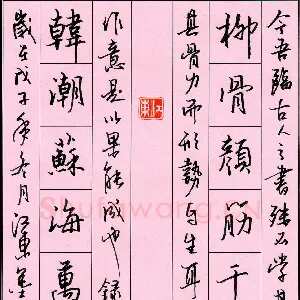 今吾臨古人之書殊不學其
柳骨顏筋千
其骨力而形勢自生耳
江東
作意是以果能成也錄
韓潮蘇海萬
歲在戊子年冬月江東墨